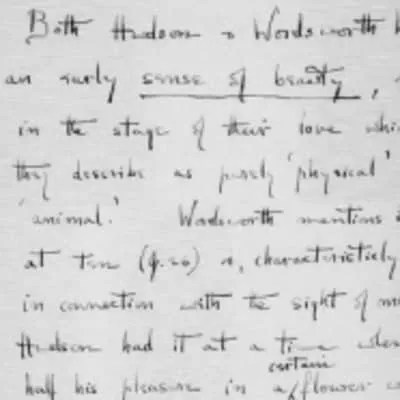 Both Hudson & Wordsworth h
an early sense of beauty,
in the stage of their love whic
they describe as purely 'physical'
'animal.' Wordsworth mentions i
at ten (p.26) &, characteristically
in connection with the sight of m
Hudson had it at a time when
certain
half his pleasure in a/flower